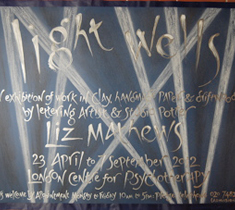 light wells
exhibition of work in clay, handmade paper & driftwood
by lettering Artist & Studio Potter
Liz Mathews
23 April to 7 September 2012
London Centre for Psychotherapy
welcome by Appointment Monday to Friday 10am to 5pm Please telephone 020 7482